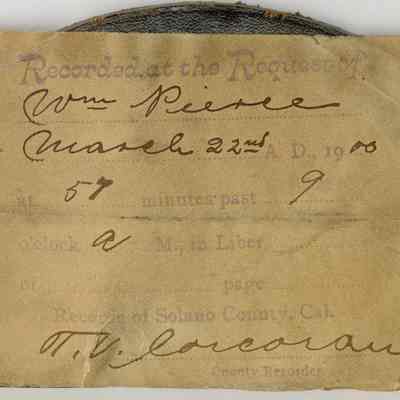 Recorded at the Request of
Wm Pierce
March 22nd A. D., 1900
at 57 minutes past 9
o'clock a M., in Liber
of page
Records of Solano County, Cal.
Corcoran
County Recorder